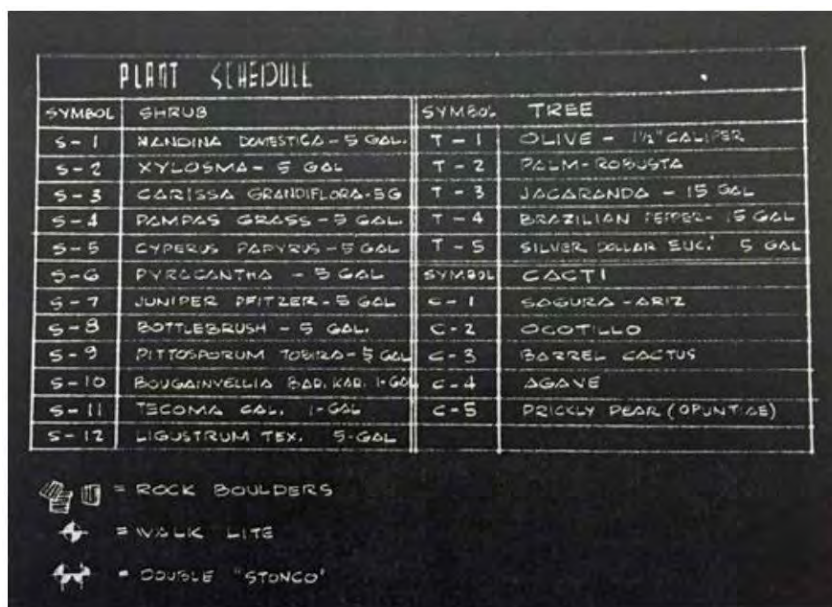 PLANT SCHEDULE
SYMBOL SHRUB SYMBOL TREE
S-1 NANDINA DOMESTICA-5 GAL. T-1 OLIVE - 1½" CALIPER
S-2 XYLOSMA-5 GAL T-2 PALM-ROBUSTA
S-3 CARISSA GRANDIFLORA-5G T-3 JACARANDA - 15 GAL
S-4 PAMPAS GRASS-5 GAL. T-4 BRAZILIAN PEPPER-15 GAL
S-5 CYPERUS PAPYRUS-5 GAL T-5 SILVER DOLLAR EUC. 5 GAL
S-6 PYRACANTHA - 5 GAL SYMBOL CACTI
S-7 JUNIPER PFITZER-5 GAL C-1 SAGURA-ARIZ
S-8 BOTTLEBRUSH - 5 GAL. C-2 OCOTILLO
S-9 PITTOSPORUM TOBIRA-5 GAL C-3 BARREL CACTUS
S-10 BOUGAINVELLIA BAR. KAR. 1-GAL C-4 AGAVE
S-11 TECOMA CAL. 1-GAL C-5 PRICKLY PEAR (OPUNTIAE)
S-12 LIGUSTRUM TEX. 5-GAL
= ROCK BOULDERS
= WALK LITE
= DOUBLE "STONCO"